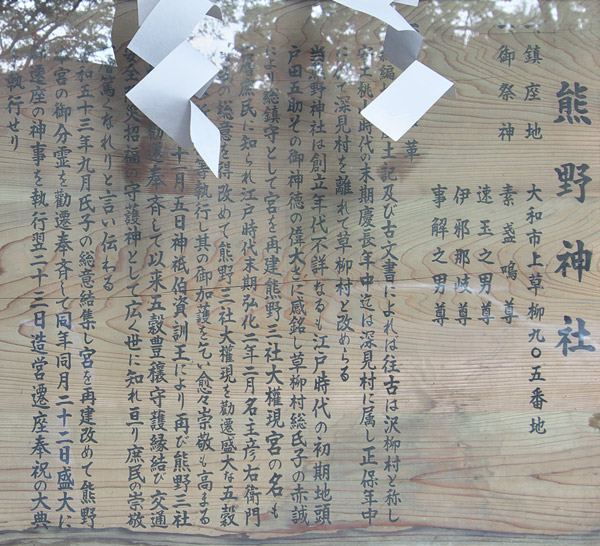 熊野神社
一 鎮座地 大和市上草柳九〇五番地
一 御祭神 素盞鳴尊
速玉之男尊
伊邪那岐尊
事解之男尊
華
編 土記及び古文書によれば往古は沢柳村と称し
安土桃 時代の末期慶長年中迄は深見村に属し正保年中
にして深見村を離れて草柳村と改めらる
当熊野神社は創立年代不詳なるも江戸時代の初期地頭
戸田五助その御神徳の偉大さに感銘し草柳村総氏子の赤誠
により総鎮守として宮を再建熊野三社大権現宮の名も
層庶民に知られ江戸時代末期弘化二年二月名主彦右衛門
の総意を得改めて熊野三社大権現を勧遷盛大な五穀
等執行し其の御加護をて愈々崇敬も高まる
十月五日神祇伯資訓王により再び熊野三社
勧遷奉斉して以来五穀豊穣守護縁結び交通
安全 災招福の守護神として広く世に知れ亘り庶民の崇敬
篤くなれりと言い伝わる
和五十三年九月氏子の総意結集し宮を再建改めて熊野
宮の御分霊を勧遷奉斉して同年同月二十二日盛大に
遷座の神事を執行翌二十三日造営遷座奉祝の大典
執行せり